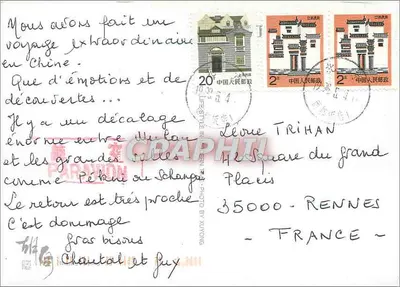 Nous avons fait un
voyage extraordinaire
en Chine.
Que d'émotions et de
découvertes...
Il y a un décalage
énorme entre
et les grandes villes
comme Pékin ou Shangai
Le retour est très proche
C'est dommage
Gros bisous
Chantal et Guy
20
中国人民邮政
2
中国人民邮政
2
中国人民邮政
TRIHAN
Square du grand
Placis
35000 - RENNES
- FRANCE -
PAR AVION
CPAPHIL